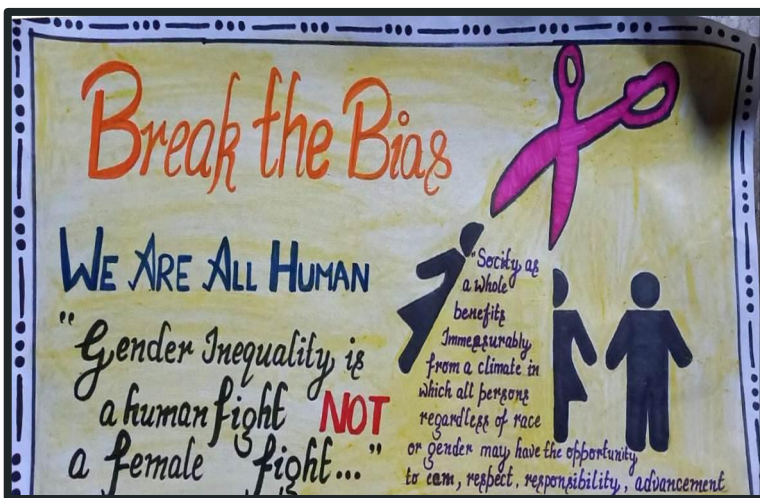 Break the Bias
WE ARE ALL HUMAN
"Gender Inequality is
a human fight NOT
a female fight..."
"Socity as
a whole
benefits
Immeasurably
from a climate in
which all persons
regardless of race
or gender may have the opportunity
to earn, respect, responsibility, advancement